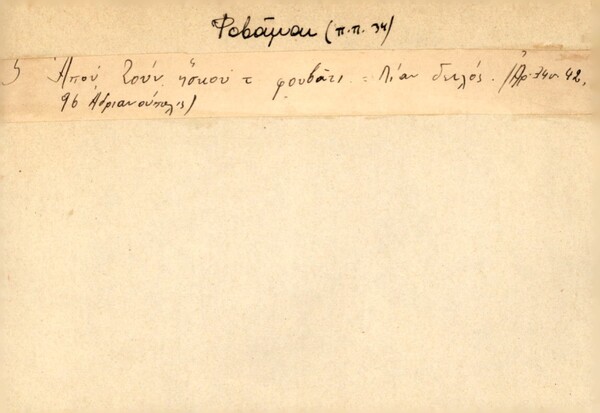 Φοβᾶμαι (π.π. 34)
5 Ἀπού τούν ἤσκιού τ φουβᾶτι = Λίαν δειλός. (Ἀρ. 34 σ. 42,
96 Ἀδριανούπολις)